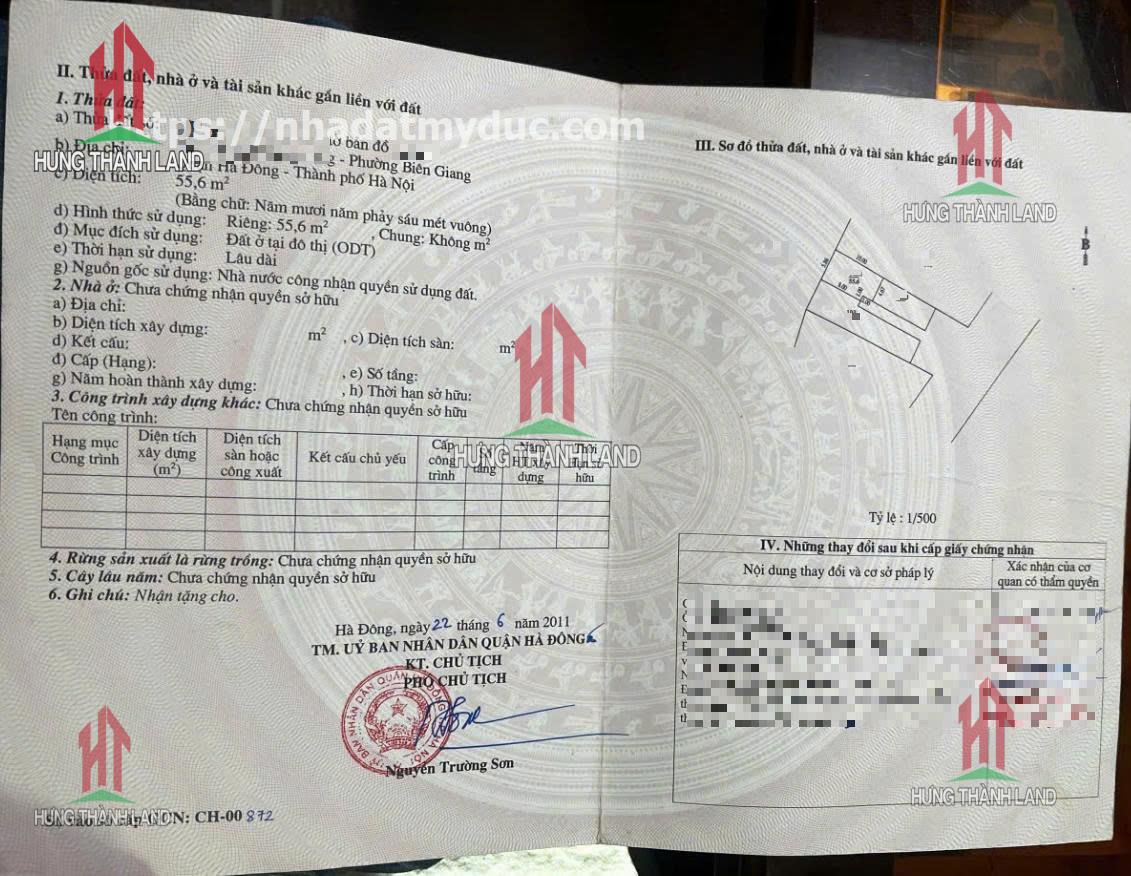 II. Thửa đất, nhà ở và tài sản khác gắn liền với đất
1. Thửa đất:
a) Thửa đất số:
https://nhadatmyduc.com
bản đồ
b) Địa chỉ:
- Phường Biên Giang
Hà Đông - Thành phố Hà Nội
c) Diện tích: 55,6 m²
(Bằng chữ: Năm mươi năm phảy sáu mét vuông)
d) Hình thức sử dụng: Riêng: 55,6 m² , Chung: Không m²
đ) Mục đích sử dụng: Đất ở tại đô thị (ODT)
e) Thời hạn sử dụng: Lâu dài
g) Nguồn gốc sử dụng: Nhà nước công nhận quyền sử dụng đất.
2. Nhà ở: Chưa chứng nhận quyền sở hữu
a) Địa chỉ:
b) Diện tích xây dựng: m² , c) Diện tích sàn: m²
d) Kết cấu:
đ) Cấp (Hạng): , e) Số tầng:
g) Năm hoàn thành xây dựng: , h) Thời hạn sở hữu:
3. Công trình xây dựng khác: Chưa chứng nhận quyền sở hữu
Tên công trình:
Hạng mục Công trình
Diện tích xây dựng (m²)
Diện tích sàn hoặc công xuất
Kết cấu chủ yếu
Cấp công trình
tầng
Năm HT xây dựng
Thời hạn sở hữu
4. Rừng sản xuất là rừng trồng: Chưa chứng nhận quyền sở hữu
5. Cây lâu năm: Chưa chứng nhận quyền sở hữu
6. Ghi chú: Nhận tặng cho.
Hà Đông, ngày 22 tháng 6 năm 2011
TM. UỶ BAN NHÂN DÂN QUẬN HÀ ĐÔNG
KT. CHỦ TỊCH
PHÓ CHỦ TỊCH
Nguyễn Trường Sơn
GCN: CH-00 872
III. Sơ đồ thửa đất, nhà ở và tài sản khác gắn liền với đất
B
55,6
Tỷ lệ : 1/500
IV. Những thay đổi sau khi cấp giấy chứng nhận
Nội dung thay đổi và cơ sở pháp lý
Xác nhận của cơ quan có thẩm quyền
HƯNG THÀNH LAND
HƯNG THÀNH LAND
HƯNG THÀNH LAND
HƯNG THÀNH LAND
HƯNG THÀNH LAND